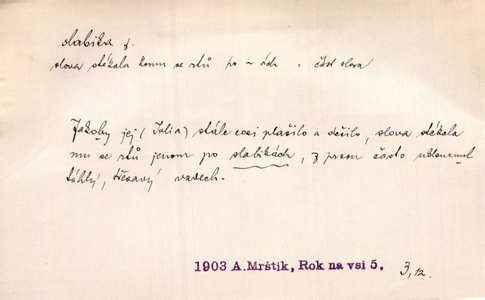 slabika f.
slova stékala komu se rtů po ~ ách = část slova
Jakoby jej (Julia) stále cosi plašilo a děsilo, slova stékala
mu se rtů jenom po slabikách, z prsou často uklouznul
táhlý, třesavý vzdech.
1903 A. Mrštík, Rok na vsi 5. 3,12